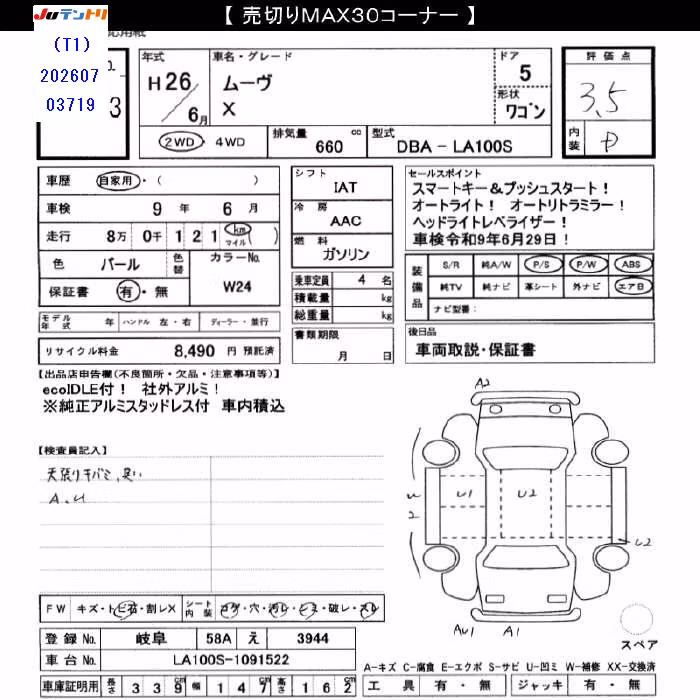 【 売切りMAX30コーナー 】
JUテントリ
(T1)
202607
03719
3
年式 H 26 / 6月
車名・グレード ムーヴ
X
ドア 5
形状 ワゴン
評価点 3.5
内装 D
2WD・4WD 排気量 660 cc 型式 DBA - LA100S
車歴 自家用・( )
車検 9 年 6 月
走行 8万 0千 1 2 1 km マイル ( )
色 パール 色替 カラーNo. W24
保証書 有・無
モデル年式 年 ハンドル 左・右 ディーラー・並行
リサイクル料金 8,490 円 預託済
シフト IAT
冷房 AAC
燃料 ガソリン
乗車定員 4 名
積載量 kg
総重量 kg
書類期限
月 日
セールスポイント
スマートキー&プッシュスタート!
オートライト! オートリトラミラー!
ヘッドライトレベライザー!
車検令和9年6月29日!
装備品 S/R 純A/W P/S P/W ABS
純TV 純ナビ 革シート 外ナビ エアB
ナビ型番:
後日品
車両取説・保証書
【出品店申告欄(不良箇所・欠品・注意事項等)】
ecoIDLE付! 社外アルミ!
※純正アルミスタッドレス付 車内積込
【検査員記入】
天張りキバミ、臭い
A、U
A2
U1
U2
U2
A1
FW キズ・トビ石・割レX シート内装 コゲ・穴・汚レ・シミ・破レ・スレ
登録No. 岐阜 58A え 3944
車台No. LA100S-1091522
車庫証明用 長さ 3 3 9 幅 1 4 7 高さ 1 6 2 cm
スペア
A-キズ C-腐食 E-エクボ S-サビ U-凹ミ W-補修 XX-交換済
工具 有・無 ジャッキ 有・無